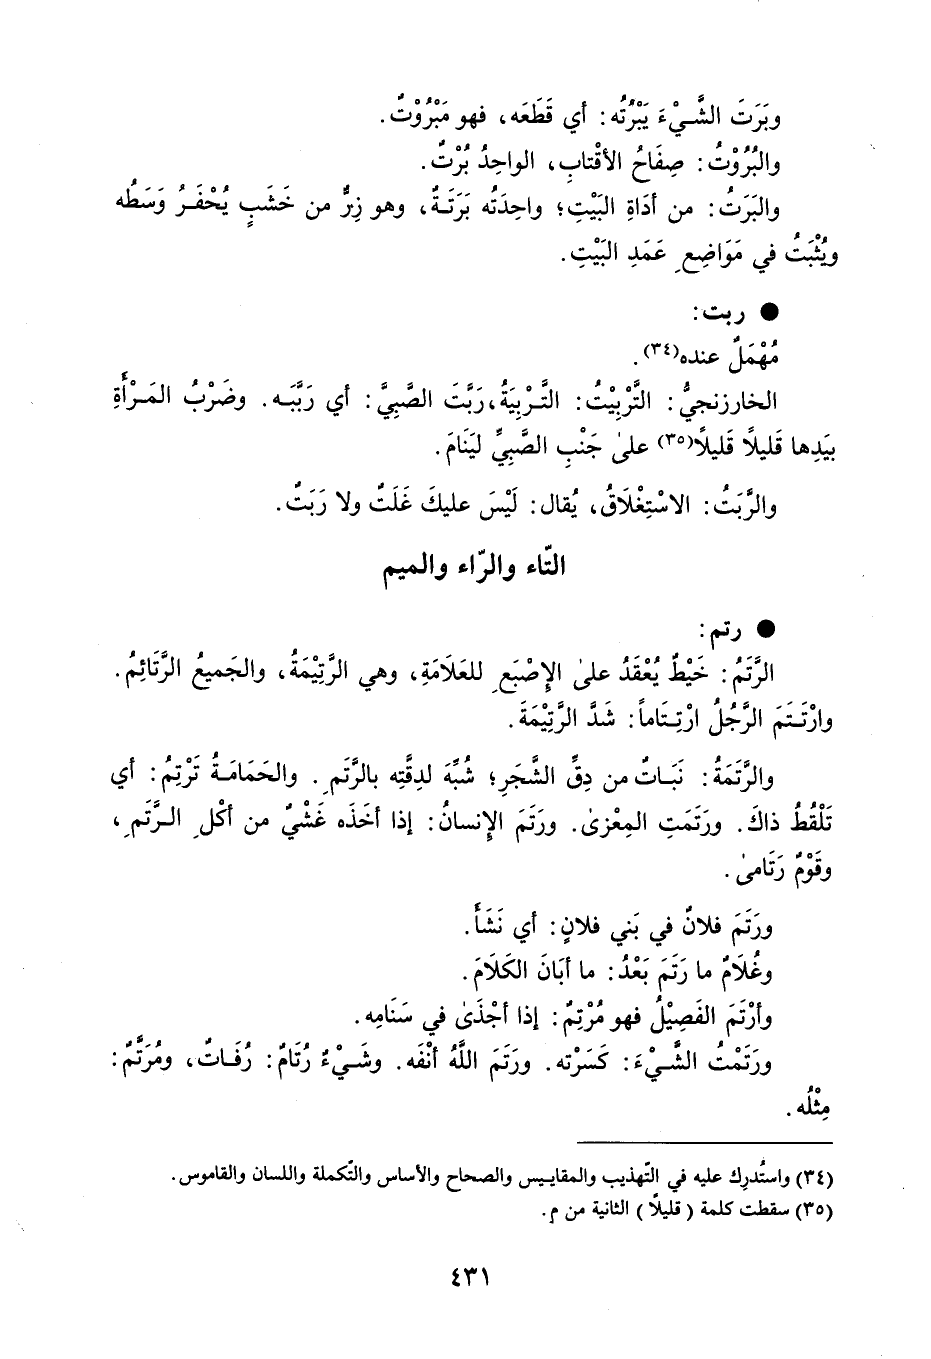 وبَرَتَ الشَّيْءَ يَبْرُتُه: أي قَطَعَه، فهو مَبْرُوْتٌ.
والبُرُوْتُ: صِفَاحُ الأقْتابِ، الواحِدُ بُرْتٌ.
والبَرَتُ: من أدَاةِ البَيْتِ؛ واحِدَتُه بَرَتَةٌ، وهو زِرٌّ من خَشَبٍ يُحْفَرُ وَسَطُه
ويُثْبَتُ في مَوَاضِعِ عَمَدِ البَيْتِ.
● ربت:
مُهْمَلٌ عنده(٣٤).
الخارزنجيُّ: التَّرْبِيْتُ: التَّرْبِيَةُ، رَبَّتَ الصَّبِيَّ: أي رَبَّبَه. وضَرْبُ المَرْأةِ
بيَدِها قَليلًا قَليلًا(٣٥) علىٰ جَنْبِ الصَّبِيِّ ليَنَامَ.
والرَّبَتُ: الاسْتِغْلَاقُ، يُقال: لَيْسَ عليكَ غَلَتٌ ولا رَبَتٌ.
التّاء والرّاء والميم
● رتم:
الرَّتَمُ: خَيْطٌ يُعْقَدُ علىٰ الإِصْبَعِ للعَلَامَةِ، وهي الرَّتِيْمَةُ، والجَميعُ الرَّتَائِمُ.
وارْتَتَمَ الرَّجُلُ ارْتِتَاماً: شَدَّ الرَّتِيْمَةَ.
والرَّتَمَةُ: نَبَاتٌ من دِقِّ الشَّجَرِ؛ شُبِّهَ لدِقَّتِه بالرَّتَمِ. والحَمَامَةُ تَرْتِمُ: أي
تَلْقُطُ ذاكَ. ورَتَمَتِ المِعْزىٰ. ورَتَمَ الإِنسانُ: إذا أخَذَه غَشْيٌ من أكْلِ الرَّتَمِ،
وقَوْمٌ رَتَامىٰ.
ورَتَمَ فلانٌ في بَني فلانٍ: أي نَشَأَ.
وغُلَامٌ ما رَتَمَ بَعْدُ: ما أبَانَ الكَلَامَ.
وأرْتَمَ الفَصِيْلُ فهو مُرْتِمٌ: إذا أجْذَىٰ في سَنَامِه.
ورَتَمْتُ الشَّيْءَ: كَسَرْته. ورَتَمَ اللَّهُ أنْفَه. وشَيْءٌ رُتَامٌ: رُفَاتٌ، ومُرَتَّمٌ:
مِثْلُه.
(٣٤) واستُدرِك عليه في التّهذيب والمقاييس والصحاح والأساس والتّكملة واللسان والقاموس.
(٣٥) سقطت كلمة (قليلًا) الثانية من م.
٤٣١